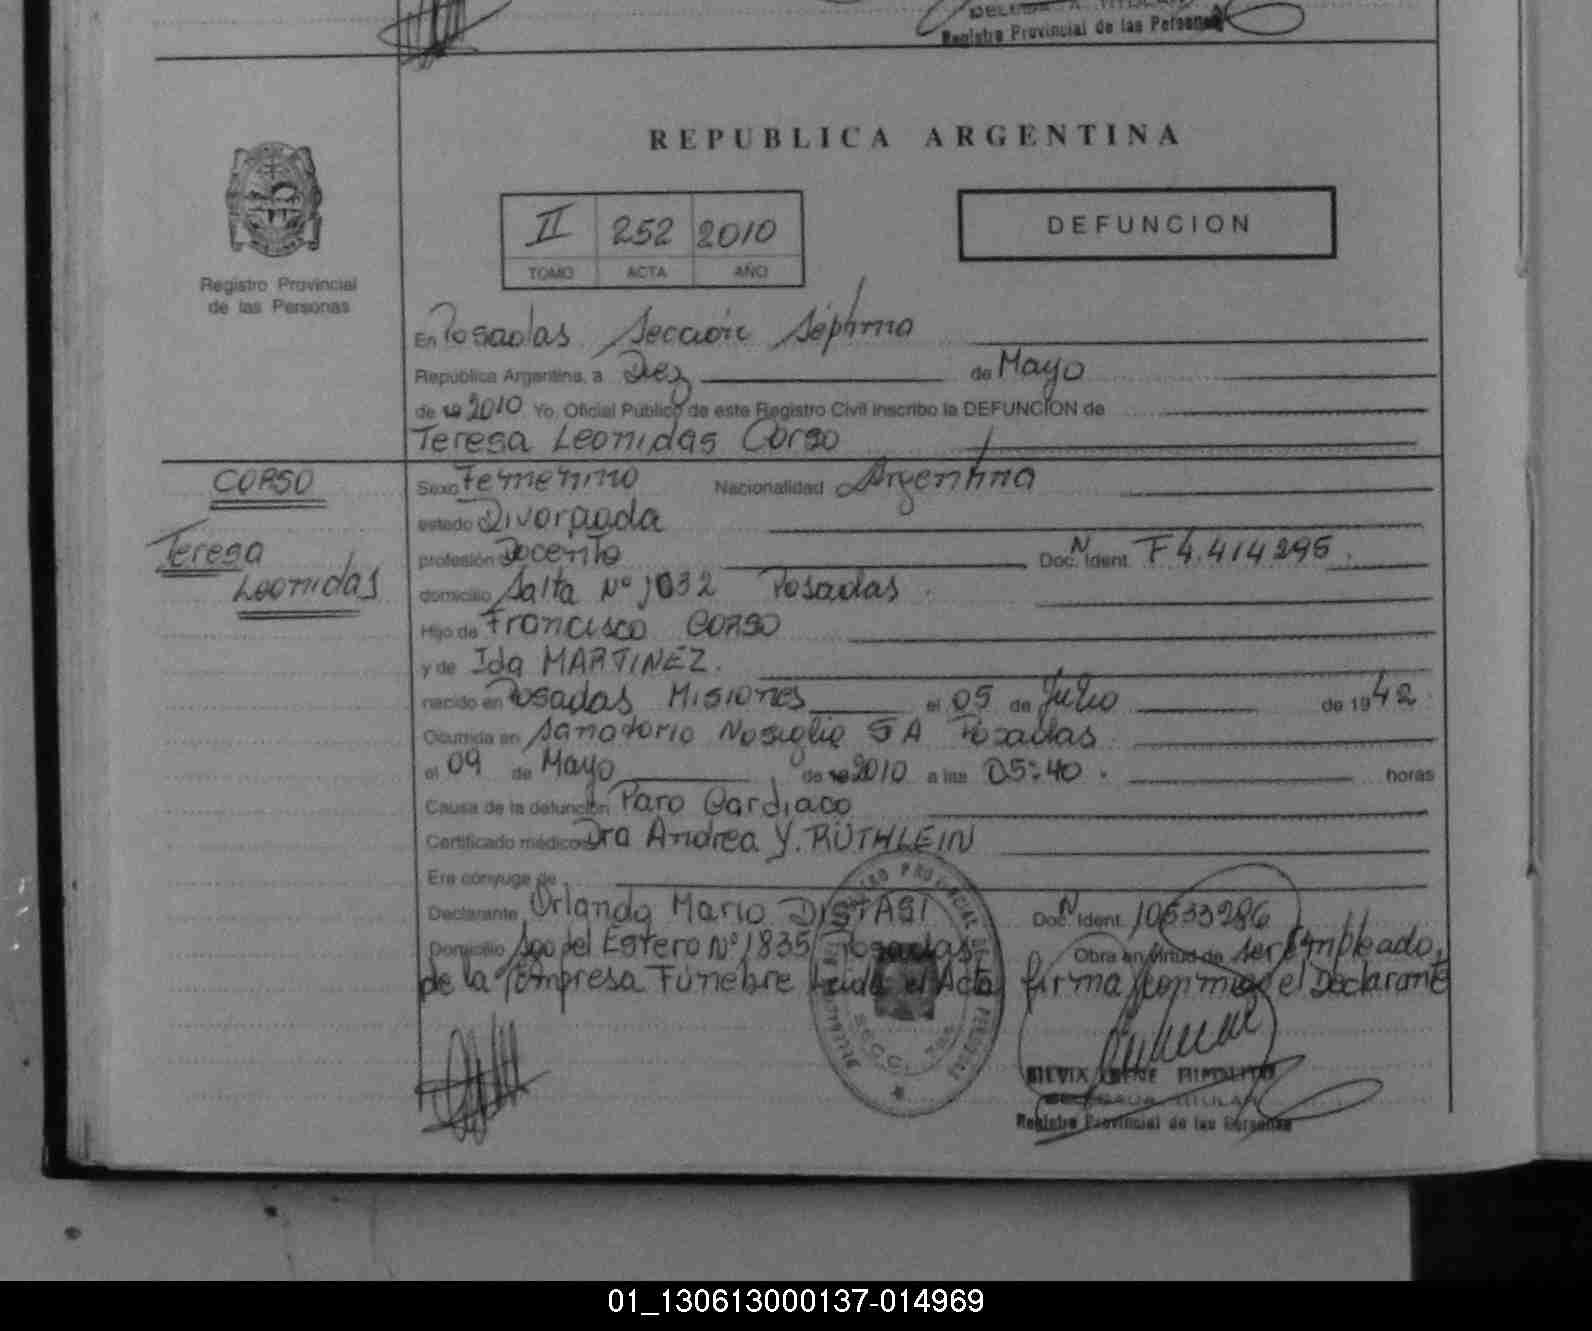 Registro Provincial de las Personas
REPUBLICA ARGENTINA
II 252 2010
TOMO ACTA AÑO
DEFUNCION
Registro Provincial
de las Personas
En Posadas Sección Séptima
República Argentina, a Diez de Mayo
de 19 2010 Yo, Oficial Público de este Registro Civil inscribo la DEFUNCION de
Teresa Leonidas Corso
CORSO
Teresa
Leonidas
Sexo Femenino Nacionalidad Argentina
estado Divorciada
profesión Docente Doc. N Ident. F 4.414295.
domicilio Salta Nº 1032 Posadas.
Hijo de Francisco CORSO
y de Ida MARTINEZ.
nacido en Posadas Misiones el 05 de Julio de 1942
Ocurrida en Sanatorio Nosiglia SA Posadas
el 09 de Mayo de 19 2010 a las 05:40. horas
Causa de la defunción Paro Cardiaco
Certificado médico Dra Andrea Y. RÜTHLEIN
Era cónyuge de
Declarante Orlando Mario DISTASI Doc. N Ident. 10533286
Domicilio Sgo del Estero Nº 1835 Posadas Obra en virtud de ser Empleado,
de la Empresa Fúnebre Leida el Acta firma conmigo el Declarante
REGISTRO PROVINCIAL DE LAS PERSONAS
SECC. 7ma
SILVIA IRENE HIPOLITO
DELEGADA TITULAR
Registro Provincial de las Personas
01_130613000137-014969